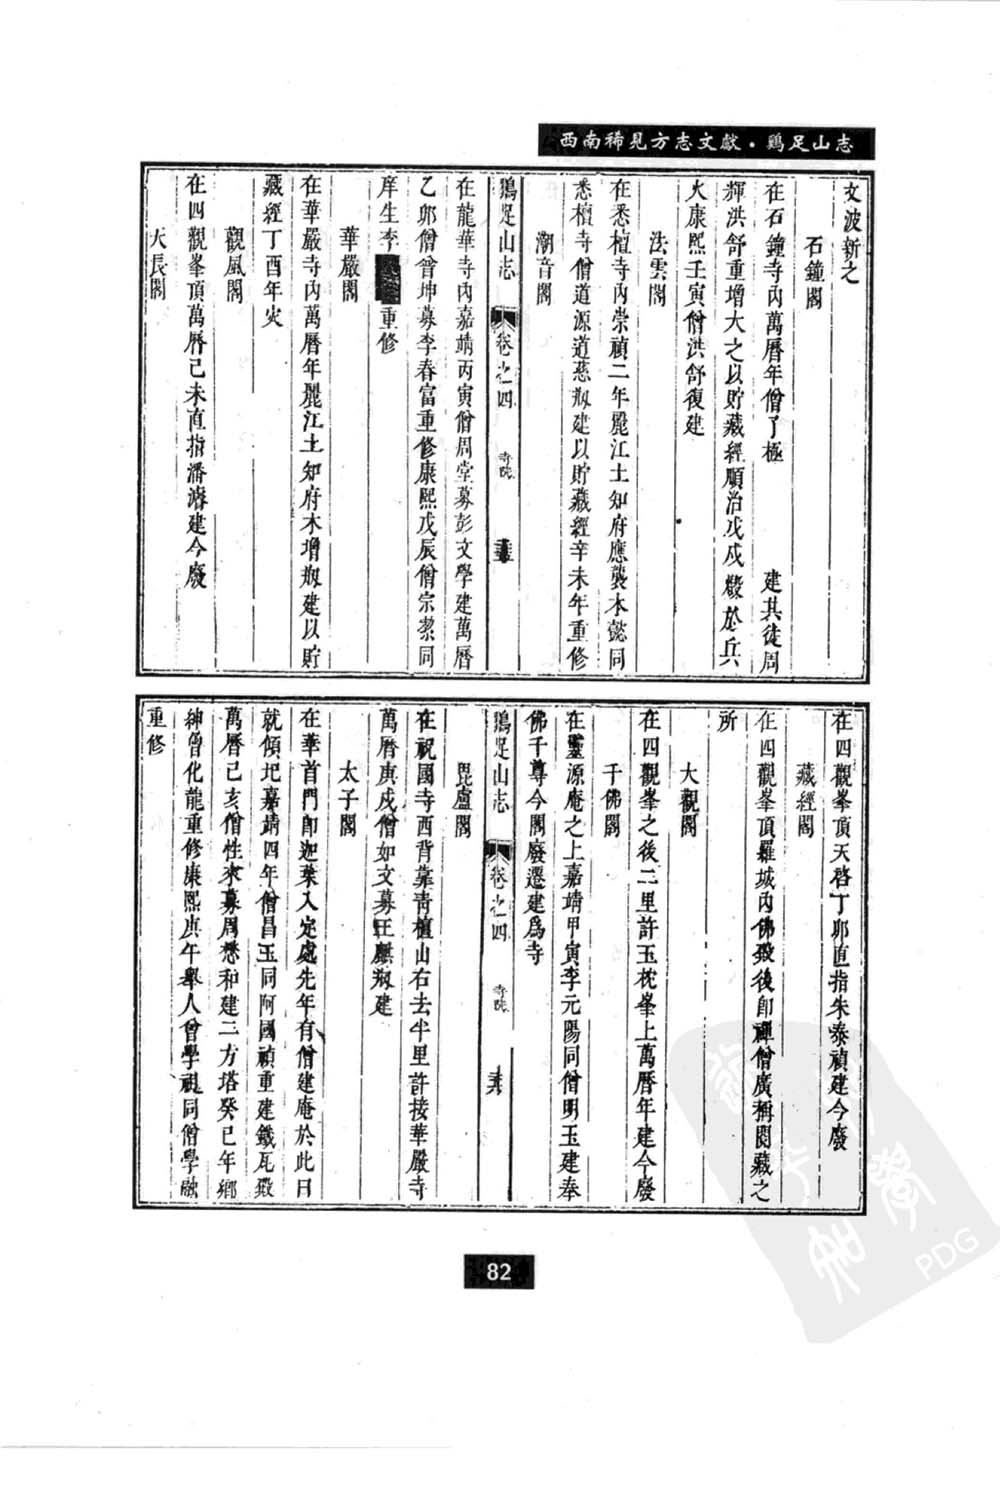 西南稀見方志文獻·鷄足山志
文波新之
石鐘閣
在石鐘寺內萬曆年僧了極 建其徒周
輝洪舒重增大之以貯藏經順治戊戌燬於兵
火康熙壬寅僧洪舒復建
法雲閣
在悉檀寺內崇禎二年麗江土知府應襲木懿同
悉檀寺僧道源道慈剏建以貯藏經辛未年重修
潮音閣
鷄足山志 卷之四 寺院
在龍華寺內嘉靖丙寅僧周堂募彭文學建萬曆
乙卯僧曾坤募李春富重修康熙戊辰僧宗潔同
庠生李 重修
華嚴閣
在華嚴寺內萬曆年麗江土知府木增剏建以貯
藏經丁酉年灾
觀風閣
在四觀峯頂萬曆己未直指潘濬建今廢
天長閣
在四觀峯頂天啓丁卯直指朱泰禎建今廢
藏經閣
在四觀峯頂羅城內佛殿後卽禪僧廣稱閱藏之
所
大觀閣
在四觀峯之後二里許玉枕峯上萬曆年建今廢
千佛閣
在靈源庵之上嘉靖甲寅李元陽同僧明玉建奉
佛千尊今閣廢遷建爲寺
鷄足山志 卷之四 寺院
毘盧閣
在祝國寺西背靠青檀山右去半里許接華嚴寺
萬曆庚戌僧如文募王麒剏建
太子閣
在華首門卽迦葉入定處先年有僧建庵於此日
就傾圮嘉靖四年僧昌玉同阿國禎重建鐵瓦殿
萬曆己亥僧性來募周懋和建二方塔癸巳年鄉
紳曾化龍重修康熙庚午舉人曾學祖同僧學融
重修
82
PDG